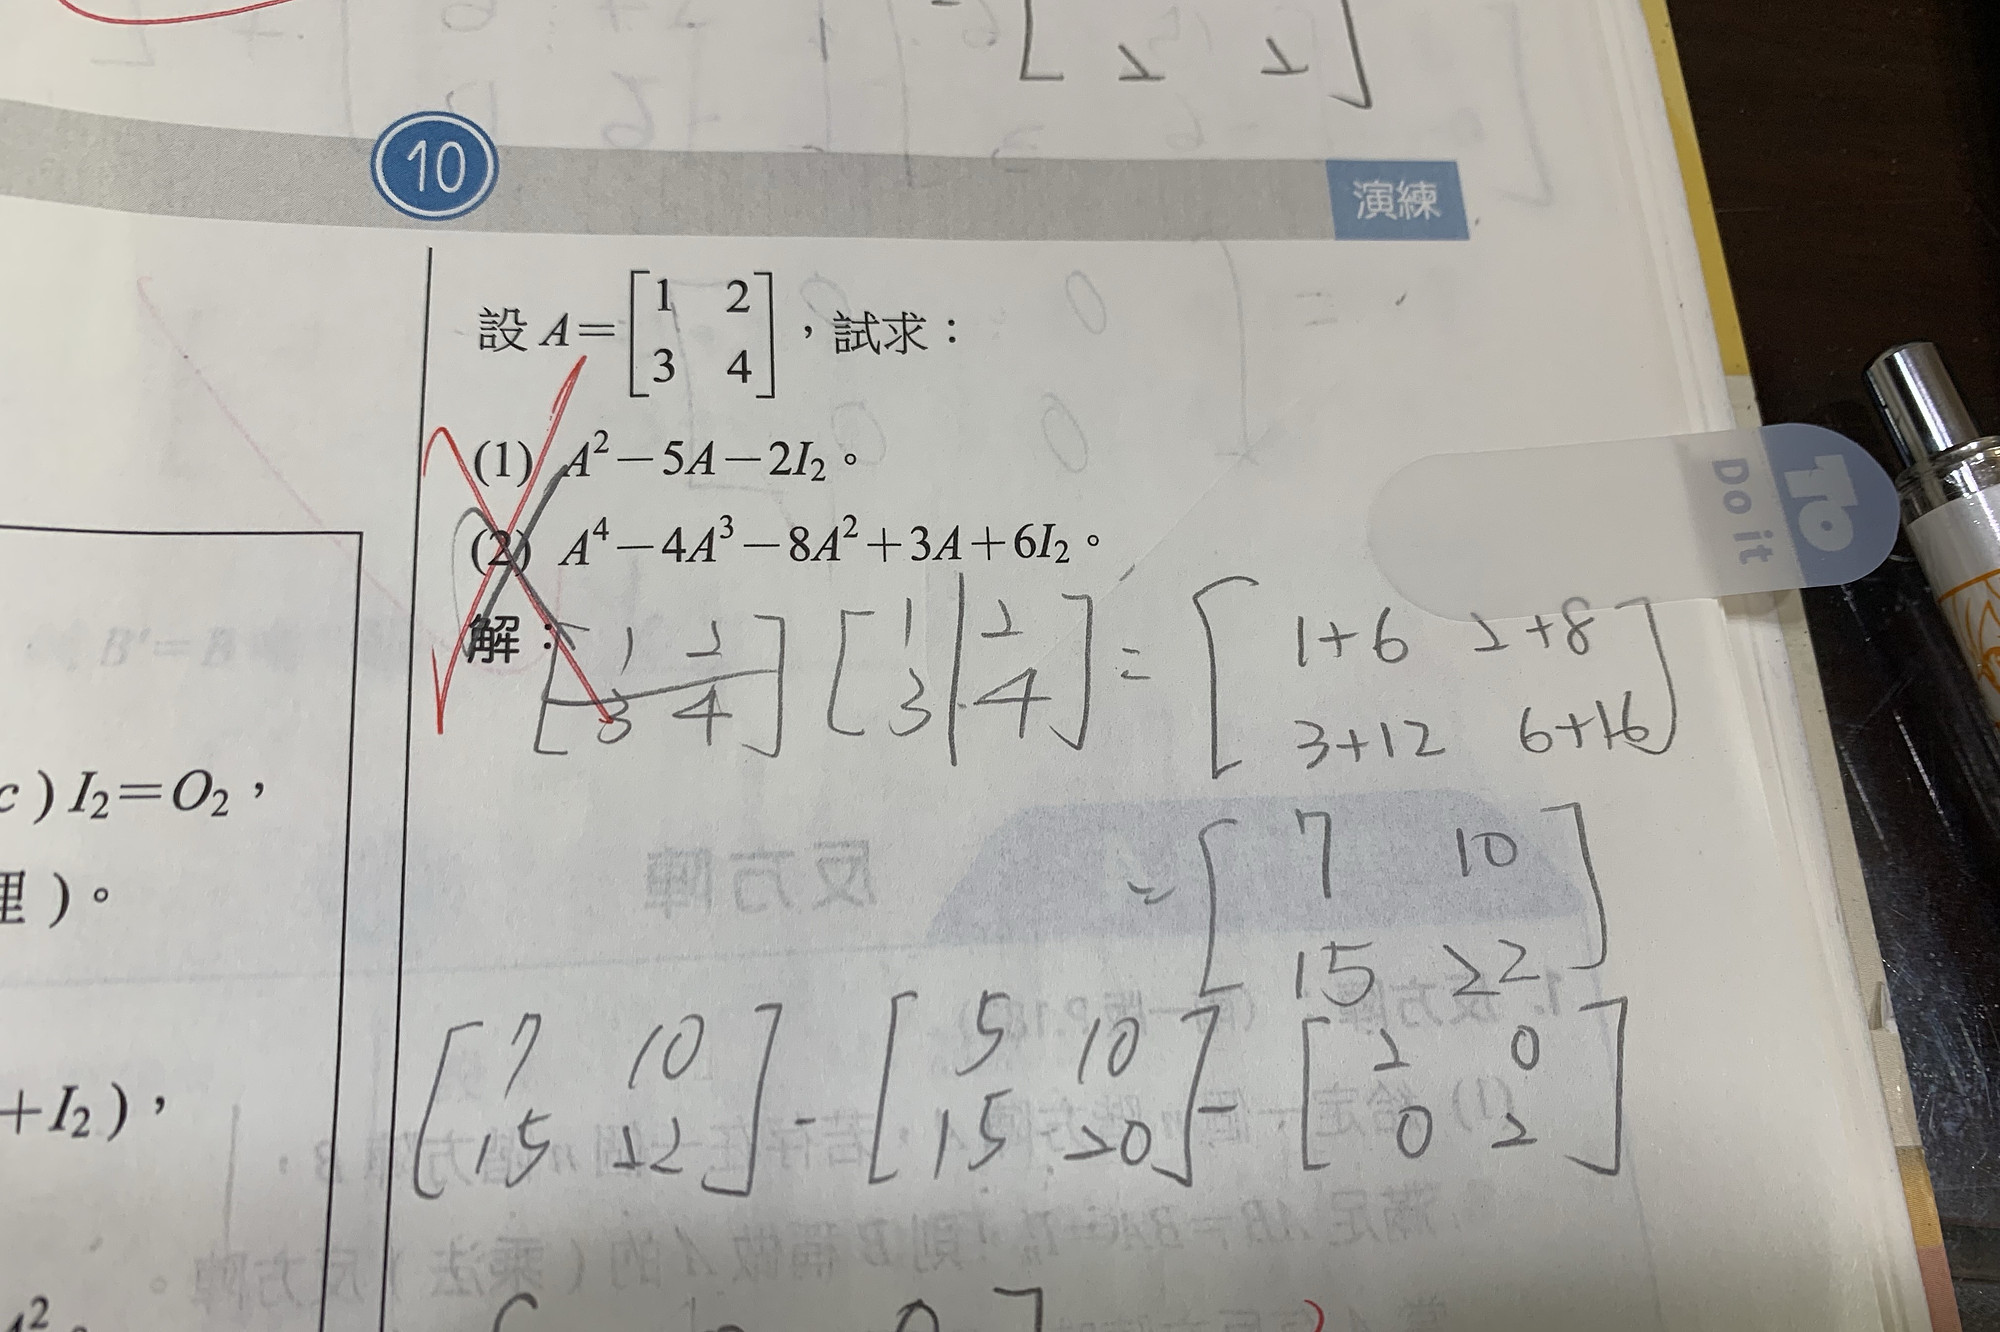 10
演練
設 A=[1 2
3 4],試求:
(1) A²-5A-2I₂。
(2) A⁴-4A³-8A²+3A+6I₂。
解:
[1 2
3 4] [1 2
3 4] = [1+6 2+8
3+12 6+16]
= [7 10
15 22]
[7 10
15 22] - [5 10
15 20] - [2 0
0 2]
c)I₂=O₂,
理)。
+I₂),
A²
To
Do it